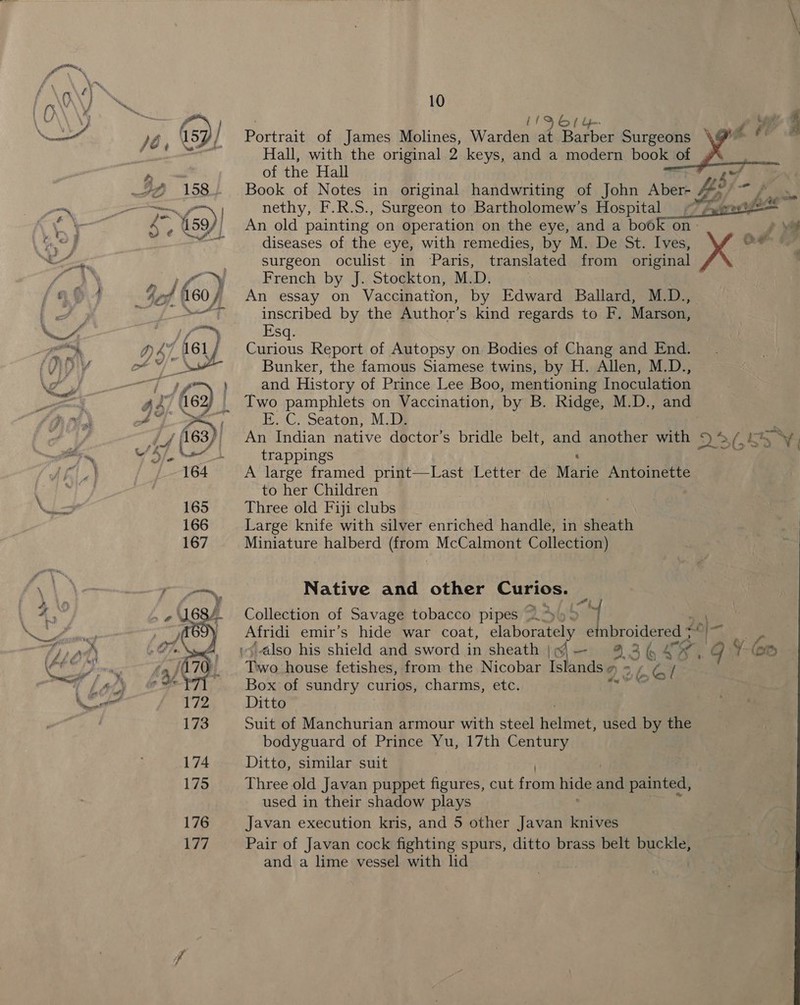 10
157 Portrait of James Molines, Warden at Barber Surgeons
Hall, with the original 2 keys, and a modern book of
of the Hall
158 Book of Notes in original handwriting of John Aber-
nethy, F.R.S., Surgeon to Bartholomew's Hospital
159 An old painting on operation on the eye, and a book on
diseases of the eye, with remedies, by M. De St. Ives,
surgeon oculist in Paris, translated from original
French by J. Stockton, M.D.
160 An essay on Vaccination, by Edward Ballard, M.D.,
inscribed by the Author's kind regards to F. Marson,
Esq.
161 Curious Report of Autopsy on Bodies of Chang and End.
Bunker, the famous Siamese twins, by H. Allen, M.D.,
and History of Prince Lee Boo, mentioning Inoculation
162 Two pamphlets on Vaccination, by B. Ridge, M.D., and
E. C. Seaton, M.D.
163 An Indian native doctor's bridle belt, and another with
trappings
164 A large framed print—Last Letter de Marie Antoinette
to her Children
165 Three old Fiji clubs
166 Large knife with silver enriched handle, in sheath
167 Miniature halberd (from McCalmont Collection)
Native and other Curios.
168 Collection of Savage tobacco pipes
169 Afridi emir's hide war coat, elaborately embroidered;
also his shield and sword in sheath
170 Two house fetishes, from the Nicobar Islands
171 Box of sundry curios, charms, etc.
172 Ditto
173 Suit of Manchurian armour with steel helmet, used by the
bodyguard of Prince Yu, 17th Century
174 Ditto, similar suit
175 Three old Javan puppet figures, cut from hide and painted,
used in their shadow plays
176 Javan execution kris, and 5 other Javan knives
177 Pair of Javan cock fighting spurs, ditto brass belt buckle,
and a lime vessel with lid